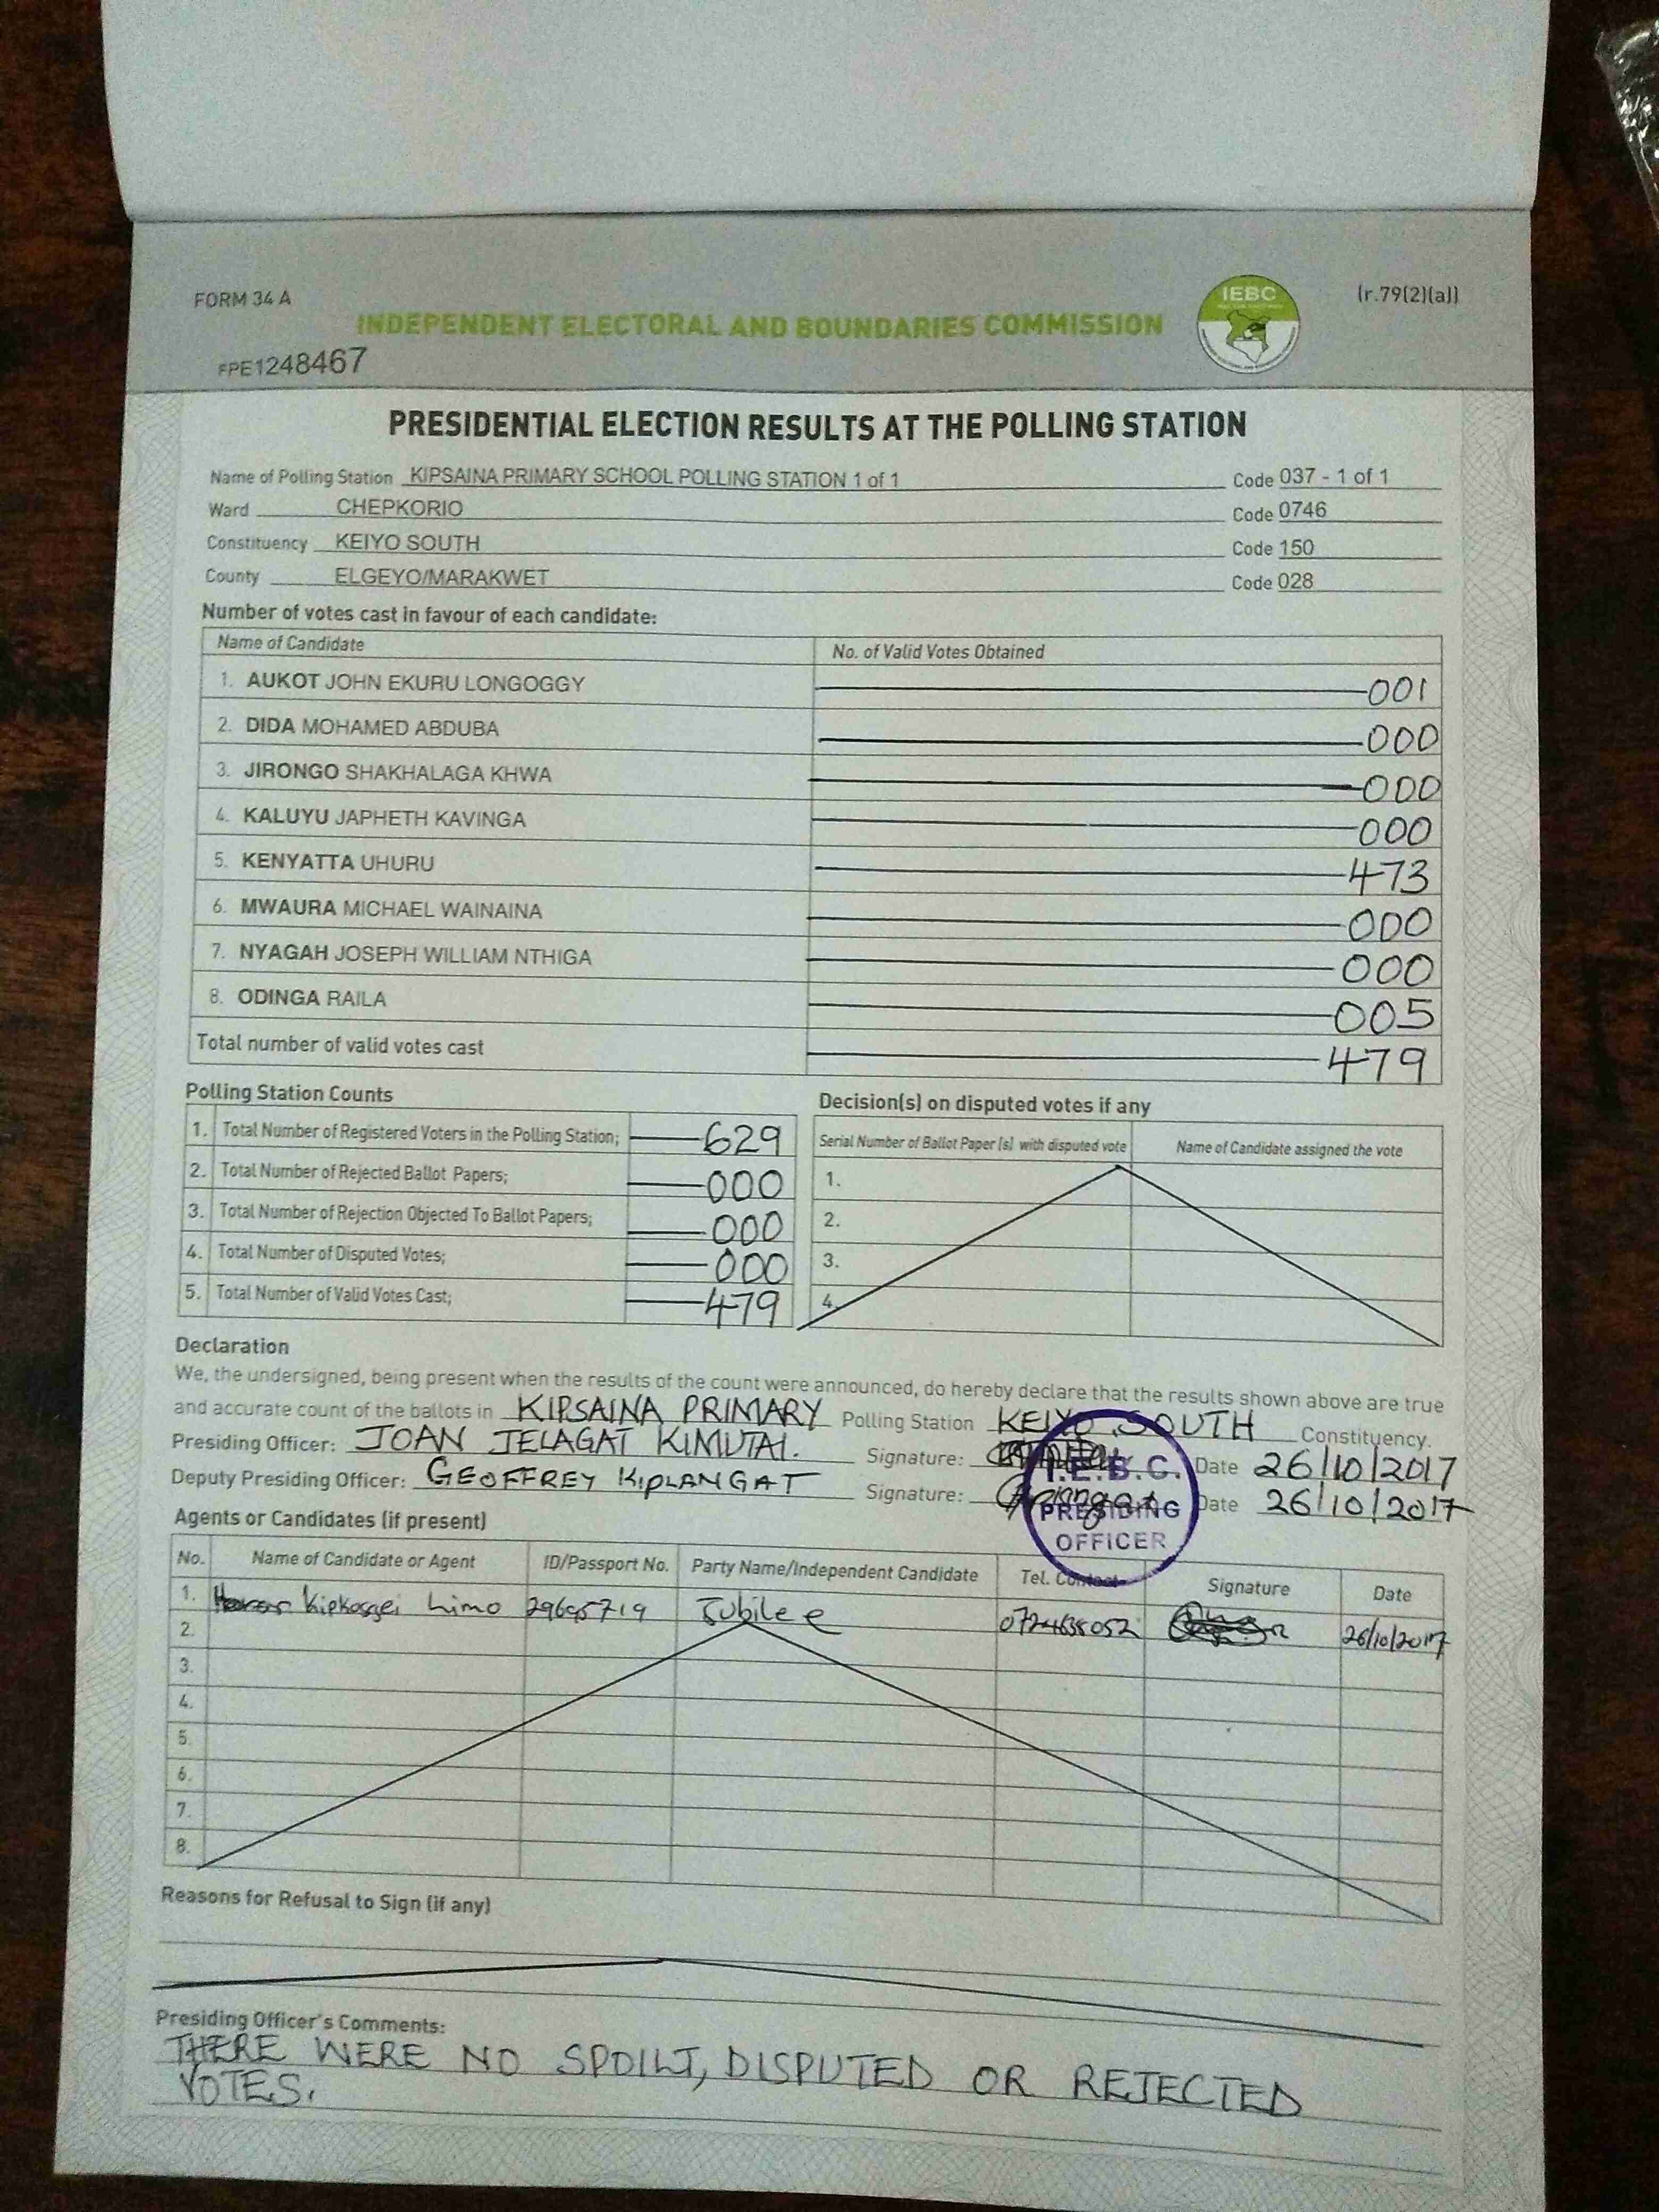 FORM 34 A
IEBC
(r.79(2)(a))
INDEPENDENT ELECTORAL AND BOUNDARIES COMMISSION
FPE1248467
PRESIDENTIAL ELECTION RESULTS AT THE POLLING STATION
Name of Polling Station KIPSAINA PRIMARY SCHOOL POLLING STATION 1 of 1 Code 037 - 1 of 1
Ward CHEPKORIO Code 0746
Constituency KEIYO SOUTH Code 150
County ELGEYO/MARAKWET Code 028
Number of votes cast in favour of each candidate:
Name of Candidate No. of Valid Votes Obtained
1. AUKOT JOHN EKURU LONGOGGY 001
2. DIDA MOHAMED ABDUBA 000
3. JIRONGO SHAKHALAGA KHWA 000
4. KALUYU JAPHETH KAVINGA 000
5. KENYATTA UHURU 473
6. MWAURA MICHAEL WAINAINA 000
7. NYAGAH JOSEPH WILLIAM NTHIGA 000
8. ODINGA RAILA 005
Total number of valid votes cast 479
Polling Station Counts
1. Total Number of Registered Voters in the Polling Station; 629
2. Total Number of Rejected Ballot Papers; 000
3. Total Number of Rejection Objected To Ballot Papers; 000
4. Total Number of Disputed Votes; 000
5. Total Number of Valid Votes Cast; 479
Decision(s) on disputed votes if any
Serial Number of Ballot Paper (s) with disputed vote Name of Candidate assigned the vote
1.
2.
3.
4.
Declaration
We, the undersigned, being present when the results of the count were announced, do hereby declare that the results shown above are true
and accurate count of the ballots in KIPSAINA PRIMARY Polling Station KEIYO SOUTH Constituency.
Presiding Officer: JOAN JELAGAT KIMUTAI. Signature: Date 26/10/2017
Deputy Presiding Officer: GEOFFREY KIPLANGAT Signature: Date 26/10/2017
I.E.B.C.
PRESIDING
OFFICER
Agents or Candidates (if present)
No. Name of Candidate or Agent ID/Passport No. Party Name/Independent Candidate Tel. Contact Signature Date
1. Kipkosgei Limo Jubilee 26/10/2017
2.
3.
4.
5.
6.
7.
8.
Reasons for Refusal to Sign (if any)
Presiding Officer's Comments:
THERE WERE NO SPOILT, DISPUTED OR REJECTED
VOTES.